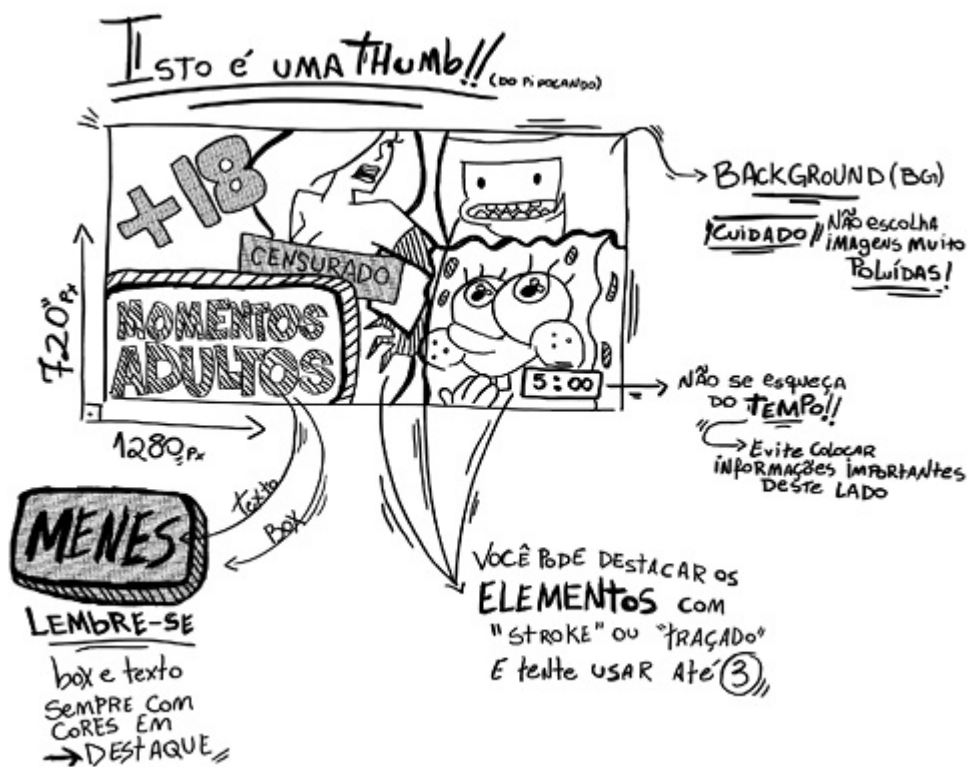 ISTO é UMA THUMB!! (DO PIPOCANDO)
+18
CENSURADO
MOMENTOS
ADULTOS
5:00
720 Px
1280 Px
BACKGROUND (BG)
CUIDADO
NÃO escolha
imagens muito
POLUÍDAS!
NÃO se esqueça
DO TEMPO!!
Evite colocar
informações importantes
DESTE LADO
texto
Box
MENES
LEMBRE-SE
box e texto
SEMPRE COM
CORES EM
DESTAQUE
VOCÊ PODE DESTACAR OS
ELEMENTOS COM
"STROKE" OU "TRAÇADO"
E tente USAR Até 3